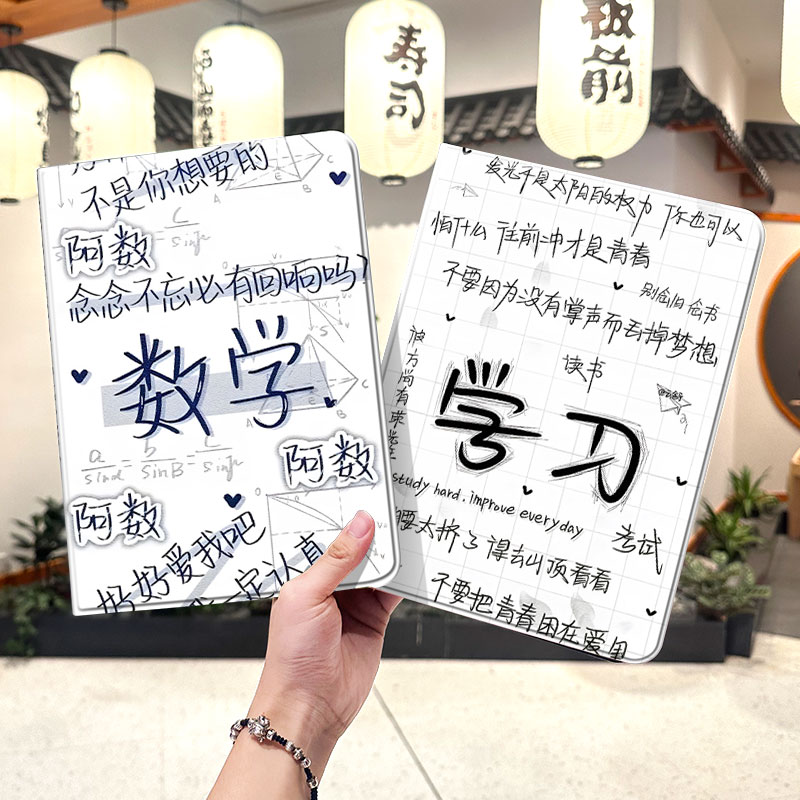 寿司
板前
不是你想要的
阿数
念念不忘必有回响吗?
数学
a/sinα = b/sinB = c/sinγ
阿数
阿数
好好爱我吧
一定认真
发光不是太阳的权力 你也可以
怕什么 往前冲才是青春
不要因为没有掌声而丢掉梦想
读书
学习
study hard. improve everyday
考试
腰太挤了 得去山顶看看
不要把青春困在爱里